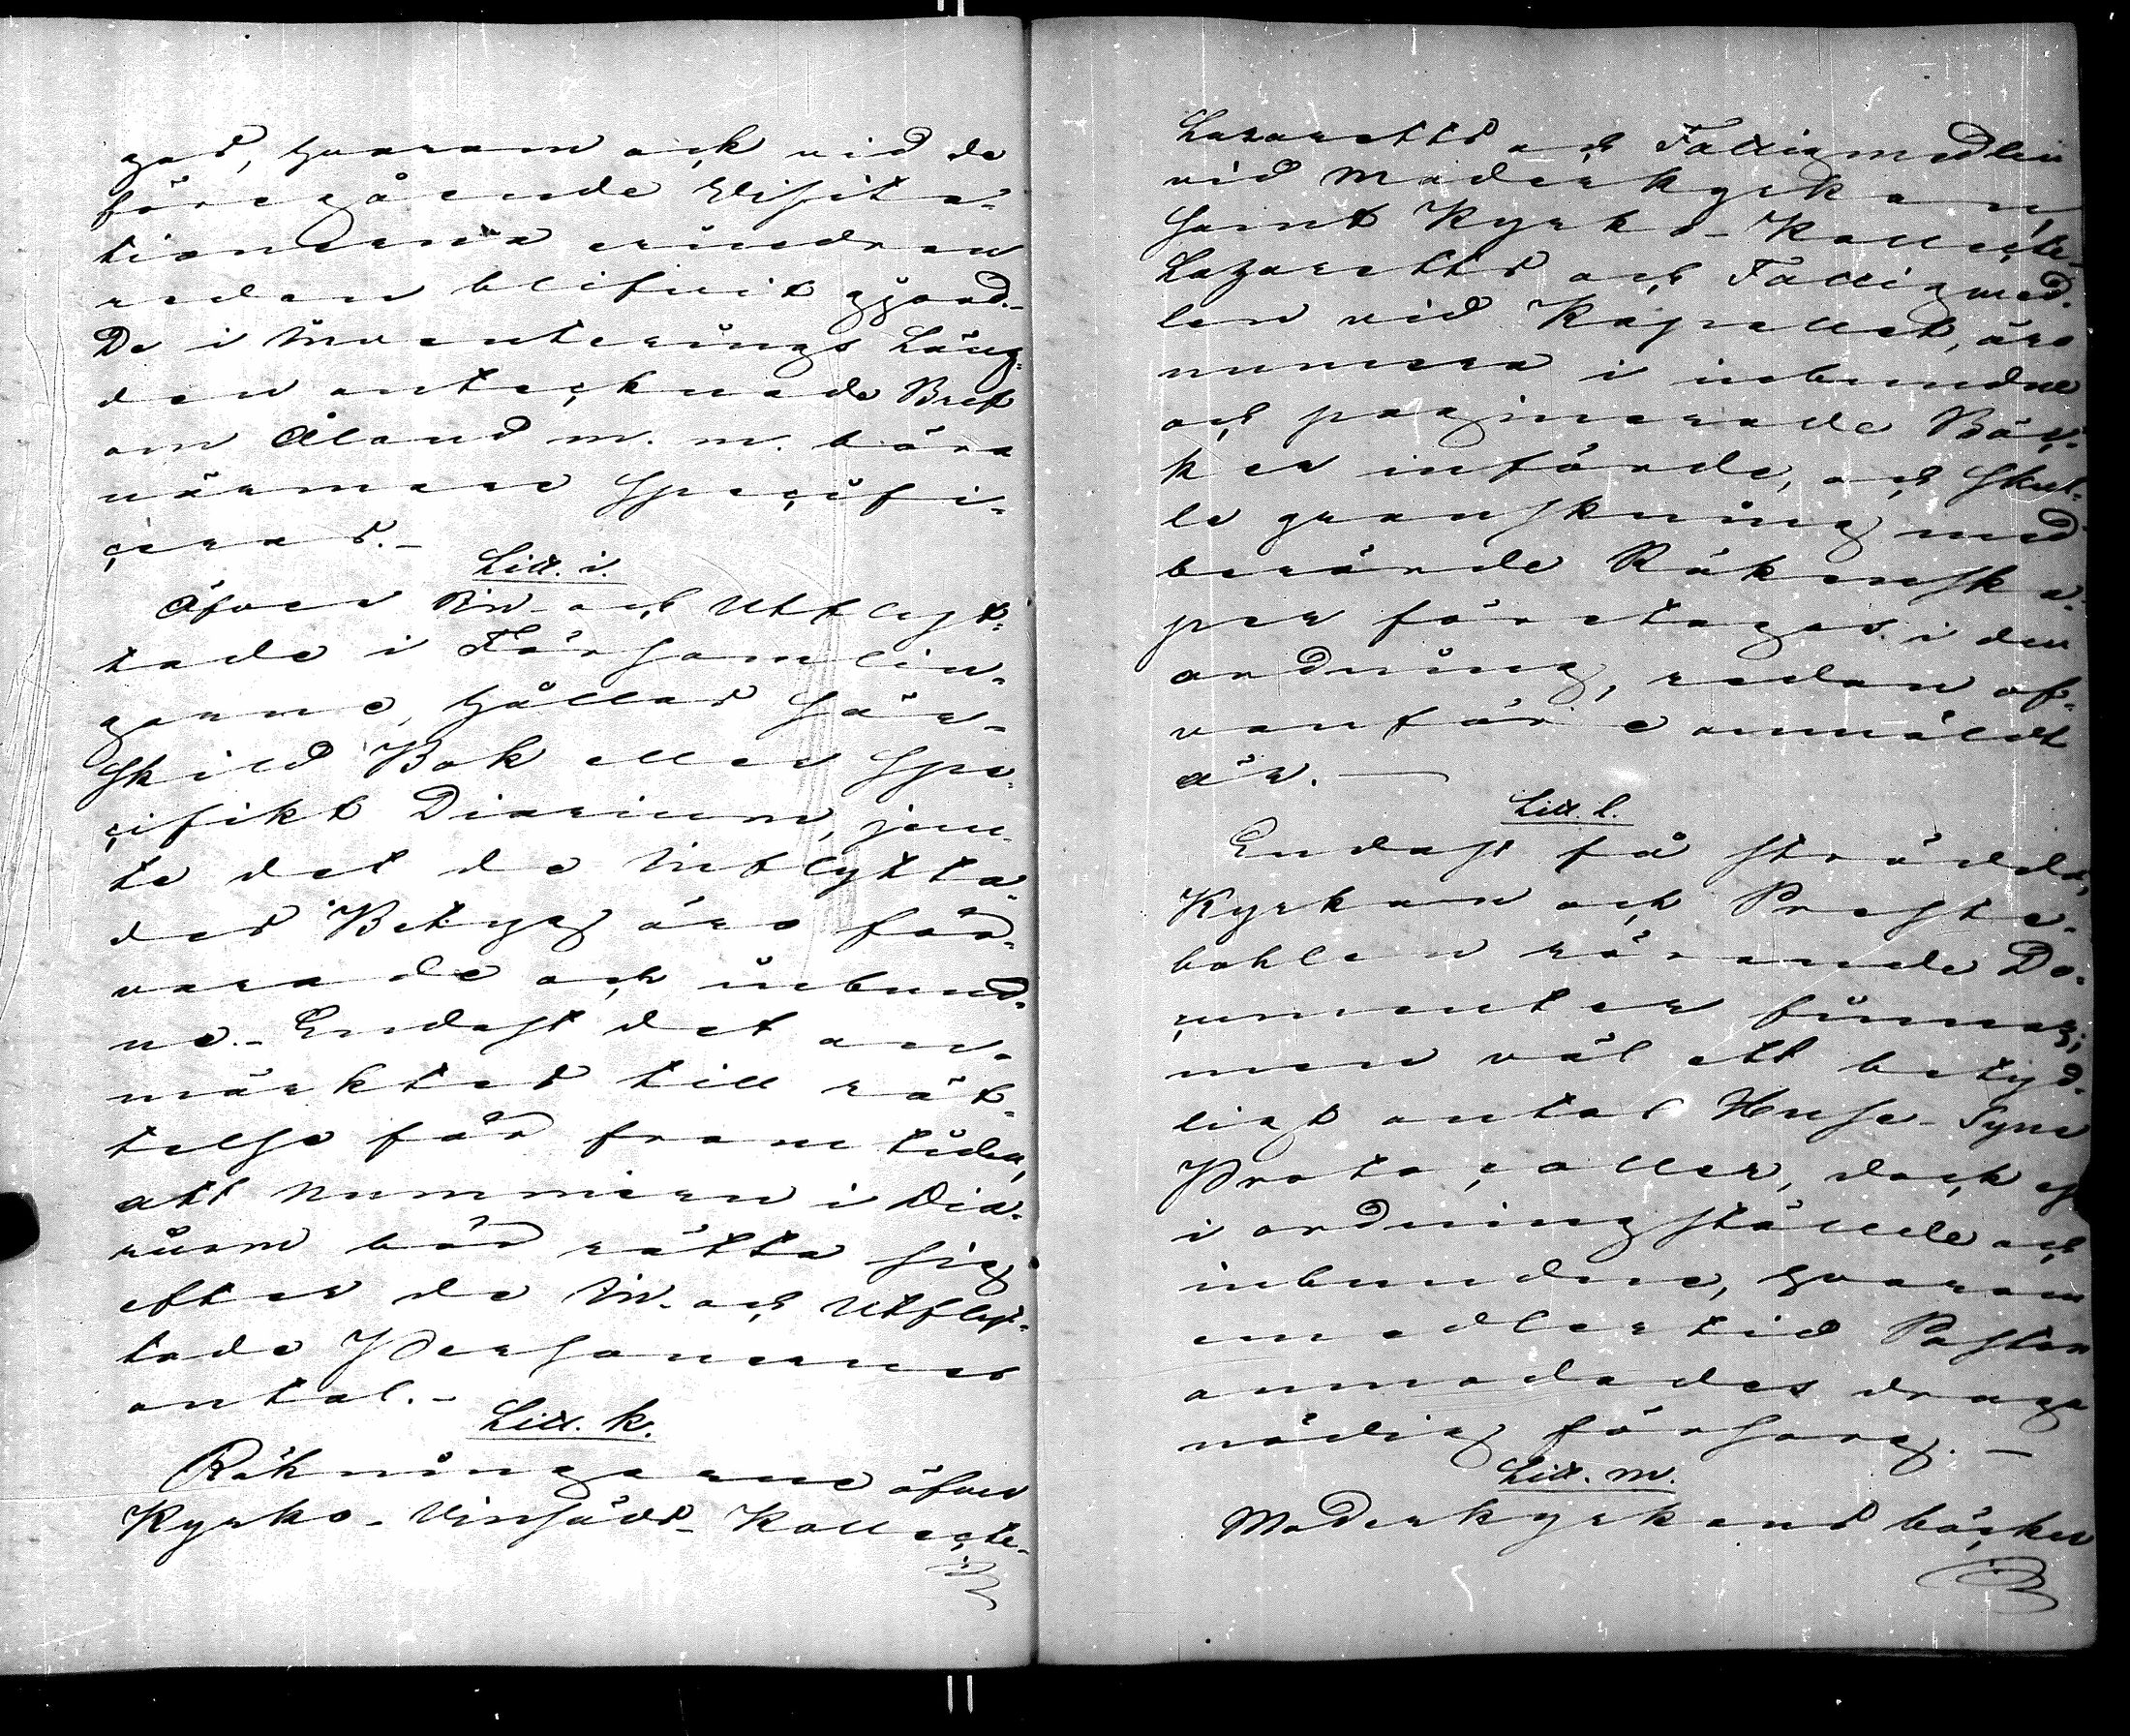 gas, hvarom ock vid de
föregående Visita-
tionerna erindran
redan blifvit gjord.-
De i Inventerings Läng-
den antecknade Bref
om Åland m. m. böra
närmare Specifi-
ceras.-
Litt. i.
Öfver In- och Utflyt-
tade i Församlin-
garne, hållas Sär-
skild Bok eller Spe-
cifikt Diarium, jem-
te det de Inflytta-
des Betyg äro för-
varade och inbund-
ne.- Endast det an-
märktes till rät-
telse för framtiden,
att Nummern i Dia-
rium bör rätta sig
efter de In- och Utflyt-
tade Personernes
antal.-
Litt. k.
Räkningarne öfver
Kyrko- Vinsäds- Kollecte-
Lazaretts och Fattigmedlen
vid Moderkyrkan,
samt Kyrko- Kollecte-
Lazaretts och Fattigmed-
len vid Kapellet, äro
numera i inbundne
och paginerade Böc-
ker införde, och Skul-
le granskning med
berörde Räkenska-
per företagas i den
ordning, redan of-
vanföre anmäldt
är.-
Litt. l.
Endast få strödda,
Kyrkan och Preste-
bohlen rörande Do-
cumenter finnas;
men väl ett betyd-
ligt antal Huse-Syne
Protocoller, dock ej
i ordningställde och
inbundne, hvarom
emedlertid Pastor
anmodades draga
nödig försorg.-
Litt. m.
Moderkyrkans böcker